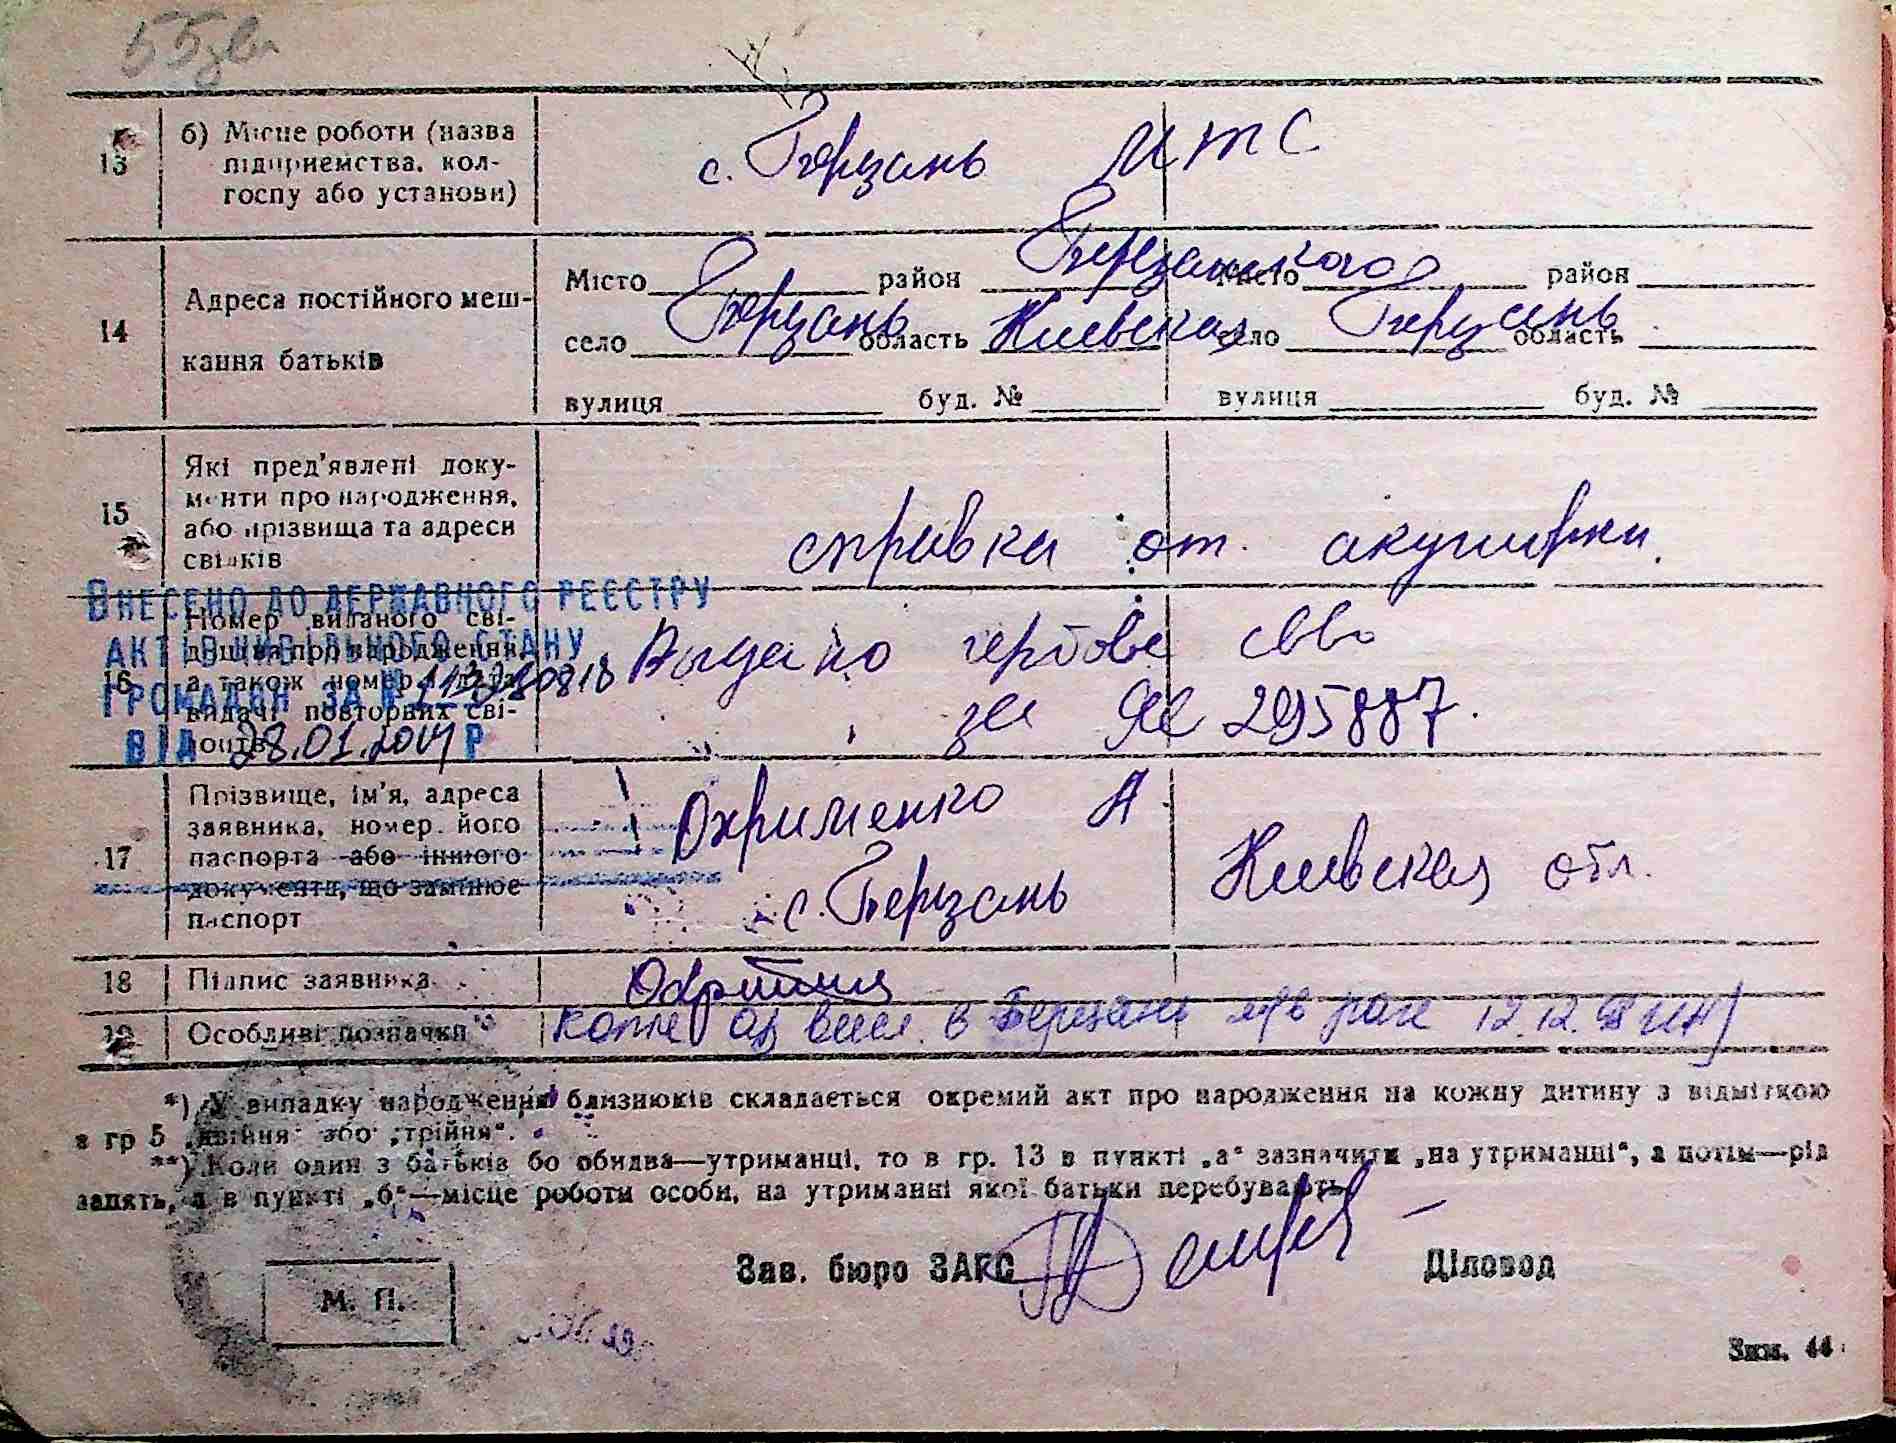 55зв
13 б) Місце роботи (назва підприємства, кол-
госпу або установи)
с. Берзань МТС
14 Адреса постійного меш-
кання батьків
Місто район Березанского Місто район
село Берзань область Киевская село Берзань область
вулиця буд. № вулиця буд. №
15 Які пред'явлені доку-
менти про народження,
або прізвища та адреси
свідків
справка от акушерки.
ВНЕСЕНО ДО ДЕРЖАВНОГО РЕЄСТРУ
АКТІВ ЦИВІЛЬНОГО СТАНУ
ГРОМАДЯН ЗА №
ВІД 28.01.20 Р
16 Номер виданого сві-
доцтва про народження,
а також номер і дата
видачі повторних сві-
доцтв
Выдано гербове
за 295887.
17 Прізвище, ім'я, адреса
заявника, номер його
паспорта або іншого
документа, що замінює
паспорт
Охрименко А
с. Берзань Киевская обл.
18 Підпис заявника
19 Особливі позначки
в Берзань 12.12.
*) У випадку народження близнюків складається окремий акт про народження на кожну дитину з відміткою
в гр 5 „двійня" або „трійня".
**) Коли один з батьків бо обидва—утриманці, то в гр. 13 в пункті „а" зазначити „на утриманні", а потім—рід
занять, а в пункті „б"—місце роботи особи, на утриманні якої батьки перебувають.
Зав. бюро ЗАГС Діловод
М. П.
Зам. 44